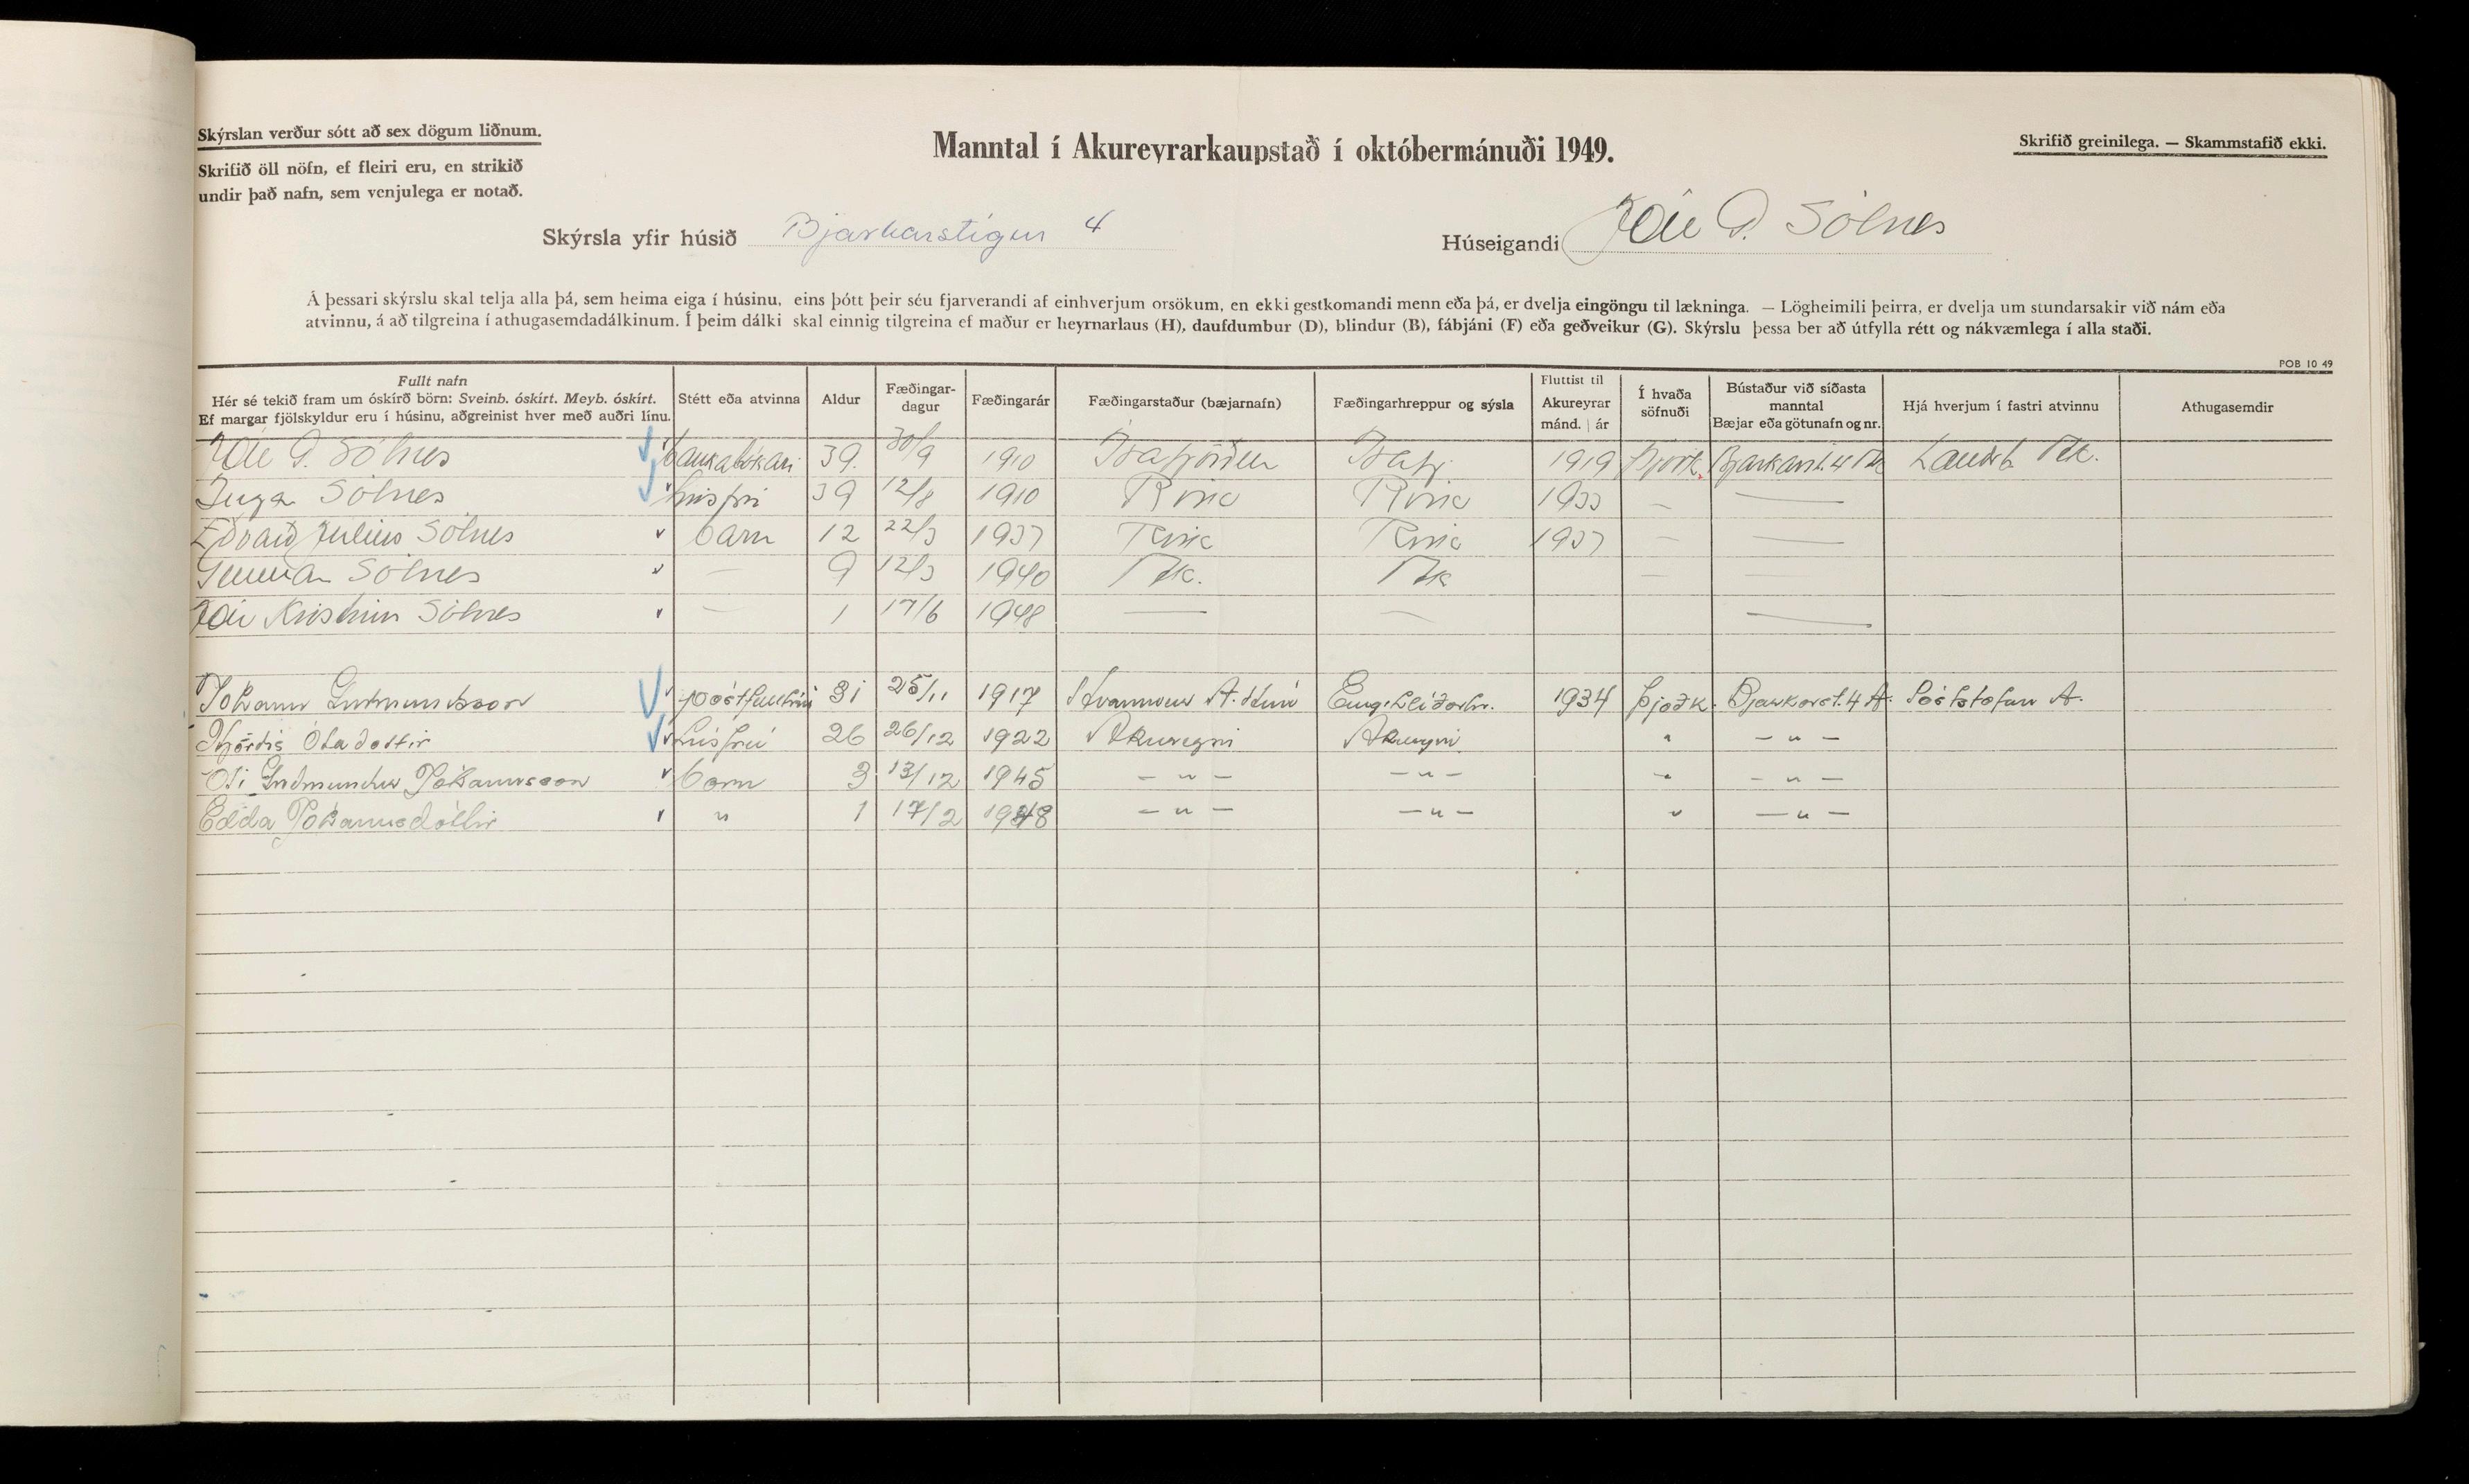 Skýrslan verður sótt að sex dögum liðnum.
Skrifið öll nöfn, ef fleiri eru, en strikið
undir það nafn, sem venjulega er notað.
Manntal í Akureyrarkaupstað í októbermánuði 1949.
Skrifið greinilega. — Skammstafið ekki.
Skýrsla yfir húsið Bjarkarstígur 4
Húseigandi Jón G. Sólnes
Á þessari skýrslu skal telja alla þá, sem heima eiga í húsinu, eins þótt þeir séu fjarverandi af einhverjum orsökum, en ekki gestkomandi menn eða þá, er dvelja eingöngu til lækninga. — Lögheimili þeirra, er dvelja um stundarsakir við nám eða
atvinnu, á að tilgreina í athugasemdadálkinum. Í þeim dálki skal einnig tilgreina ef maður er heyrnarlaus (H), daufdumbur (D), blindur (B), fábjáni (F) eða geðveikur (G). Skýrslu þessa ber að útfylla rétt og nákvæmlega í alla staði.
POB 10 49
Fullt nafn
Hér sé tekið fram um óskírð börn: Sveinb. óskírt. Meyb. óskírt.
Ef margar fjölskyldur eru í húsinu, aðgreinist hver með auðri línu.
Stétt eða atvinna
Aldur
Fæðingar-
dagur
Fæðingarár
Fæðingarstaður (bæjarnafn)
Fæðingarhreppur og sýsla
Fluttist til
Akureyrar
mánd. | ár
Í hvaða
söfnuði
Bústaður við síðasta
manntal
Bæjar eða götunafn og nr.
Hjá hverjum í fastri atvinnu
Athugasemdir
Jón G. Sólnes bankabókari 39. 30/9 1910 Ísafjörður Ísafj. 1919 Þjóðk. Bjarkarst. 4 Ak Landsb. Ak.
Inga Sólnes húsfrú 39 12/8 1910 Rvík Rvík 1933 — —
Edvard Júlíus Sólnes barn 12 22/3 1937 Rvík Rvík 1937 — —
Gunnar Sólnes — 9 12/3 1940 Ak. Ak — —
Jón Kristinn Sólnes — 1 17/6 1948 — — —
Jóhann Guðmundsson póstfulltrúi 31 25/11 1917 A. Hún Engihlíðarhr. 1934 Þjóðk. Bjarkarst. 4 A. Póststofan A.
Hjördís Óladóttir húsfrú 26 26/12 1922 Akureyri Akureyri " — " —
Óli Guðmundur Jóhannsson barn 3 13/12 1945 — " — — " — " — " —
Edda Jóhannsdóttir " 1 17/2 1948 — " — — " — " — " —